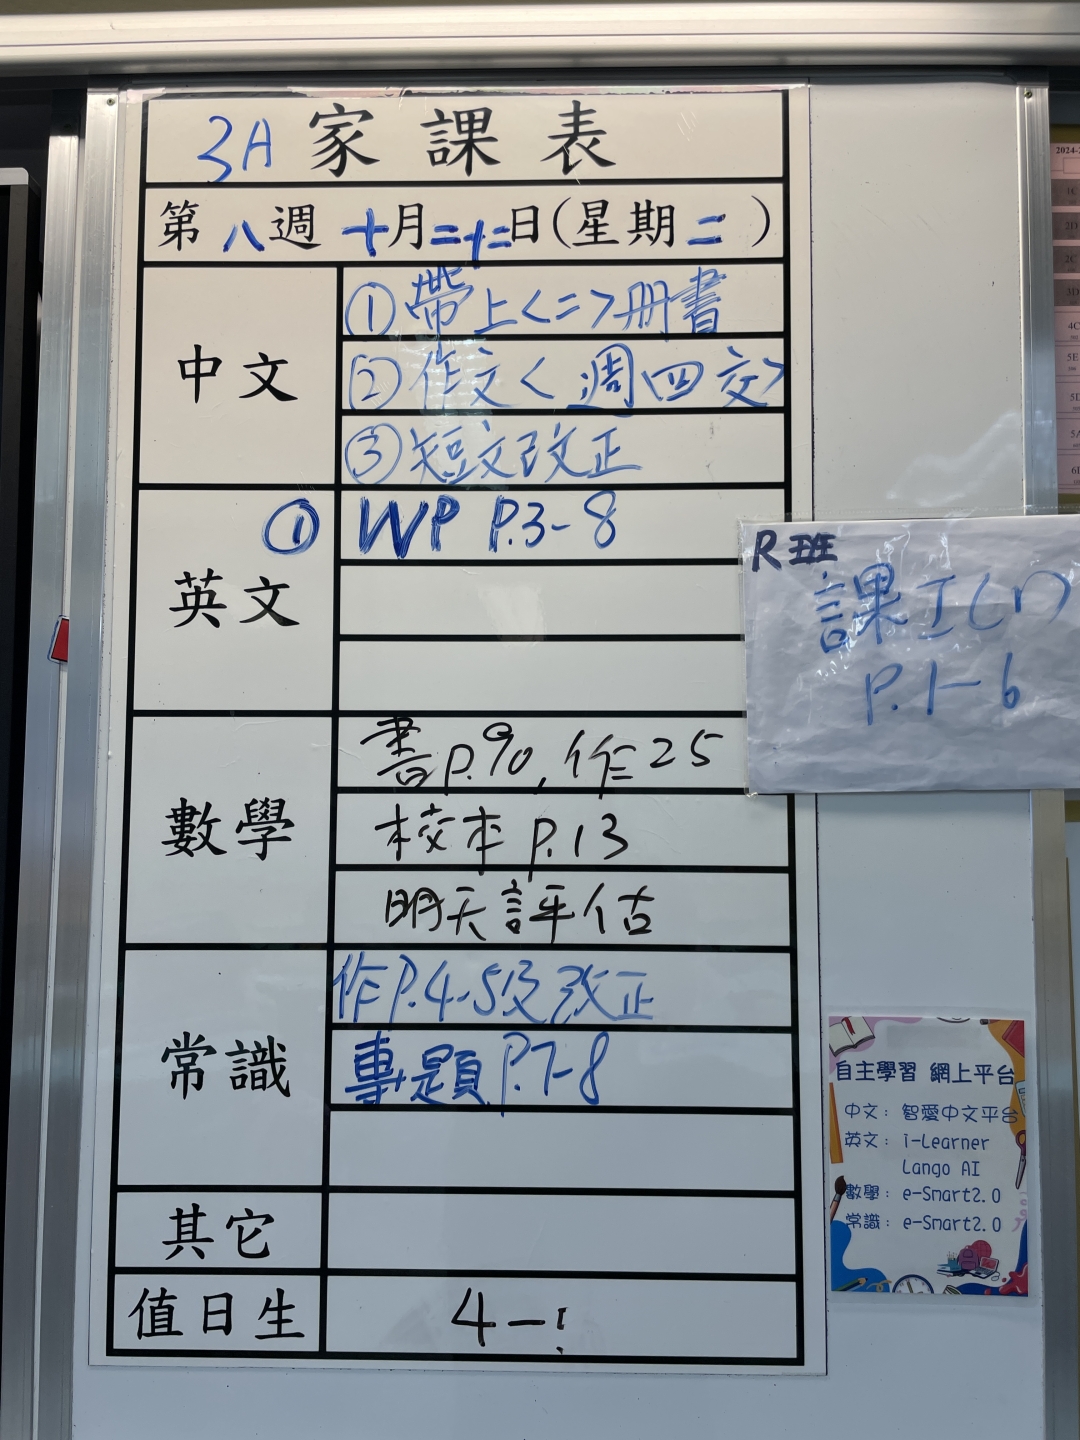 3A 家課表
第八週 十月二十二日(星期二)
中文
①帶上<二>冊書
②作文<週四交>
③短文改正
英文
① WP P.3-8
數學
書p.90,作25
校本 p.13
明天評估
常識
作P.4-5及改正
專題P.7-8
其它
值日生
4-
R班
課工(n)
P.1-6
自主學習 網上平台
中文: 智愛中文平台
英文: i-Learner
Lango AI
數學: e-Smart2.0
常識: e-Smart2.0
2024-2
1C
2D
2C
3D
4C
5E
5D
5A
6D